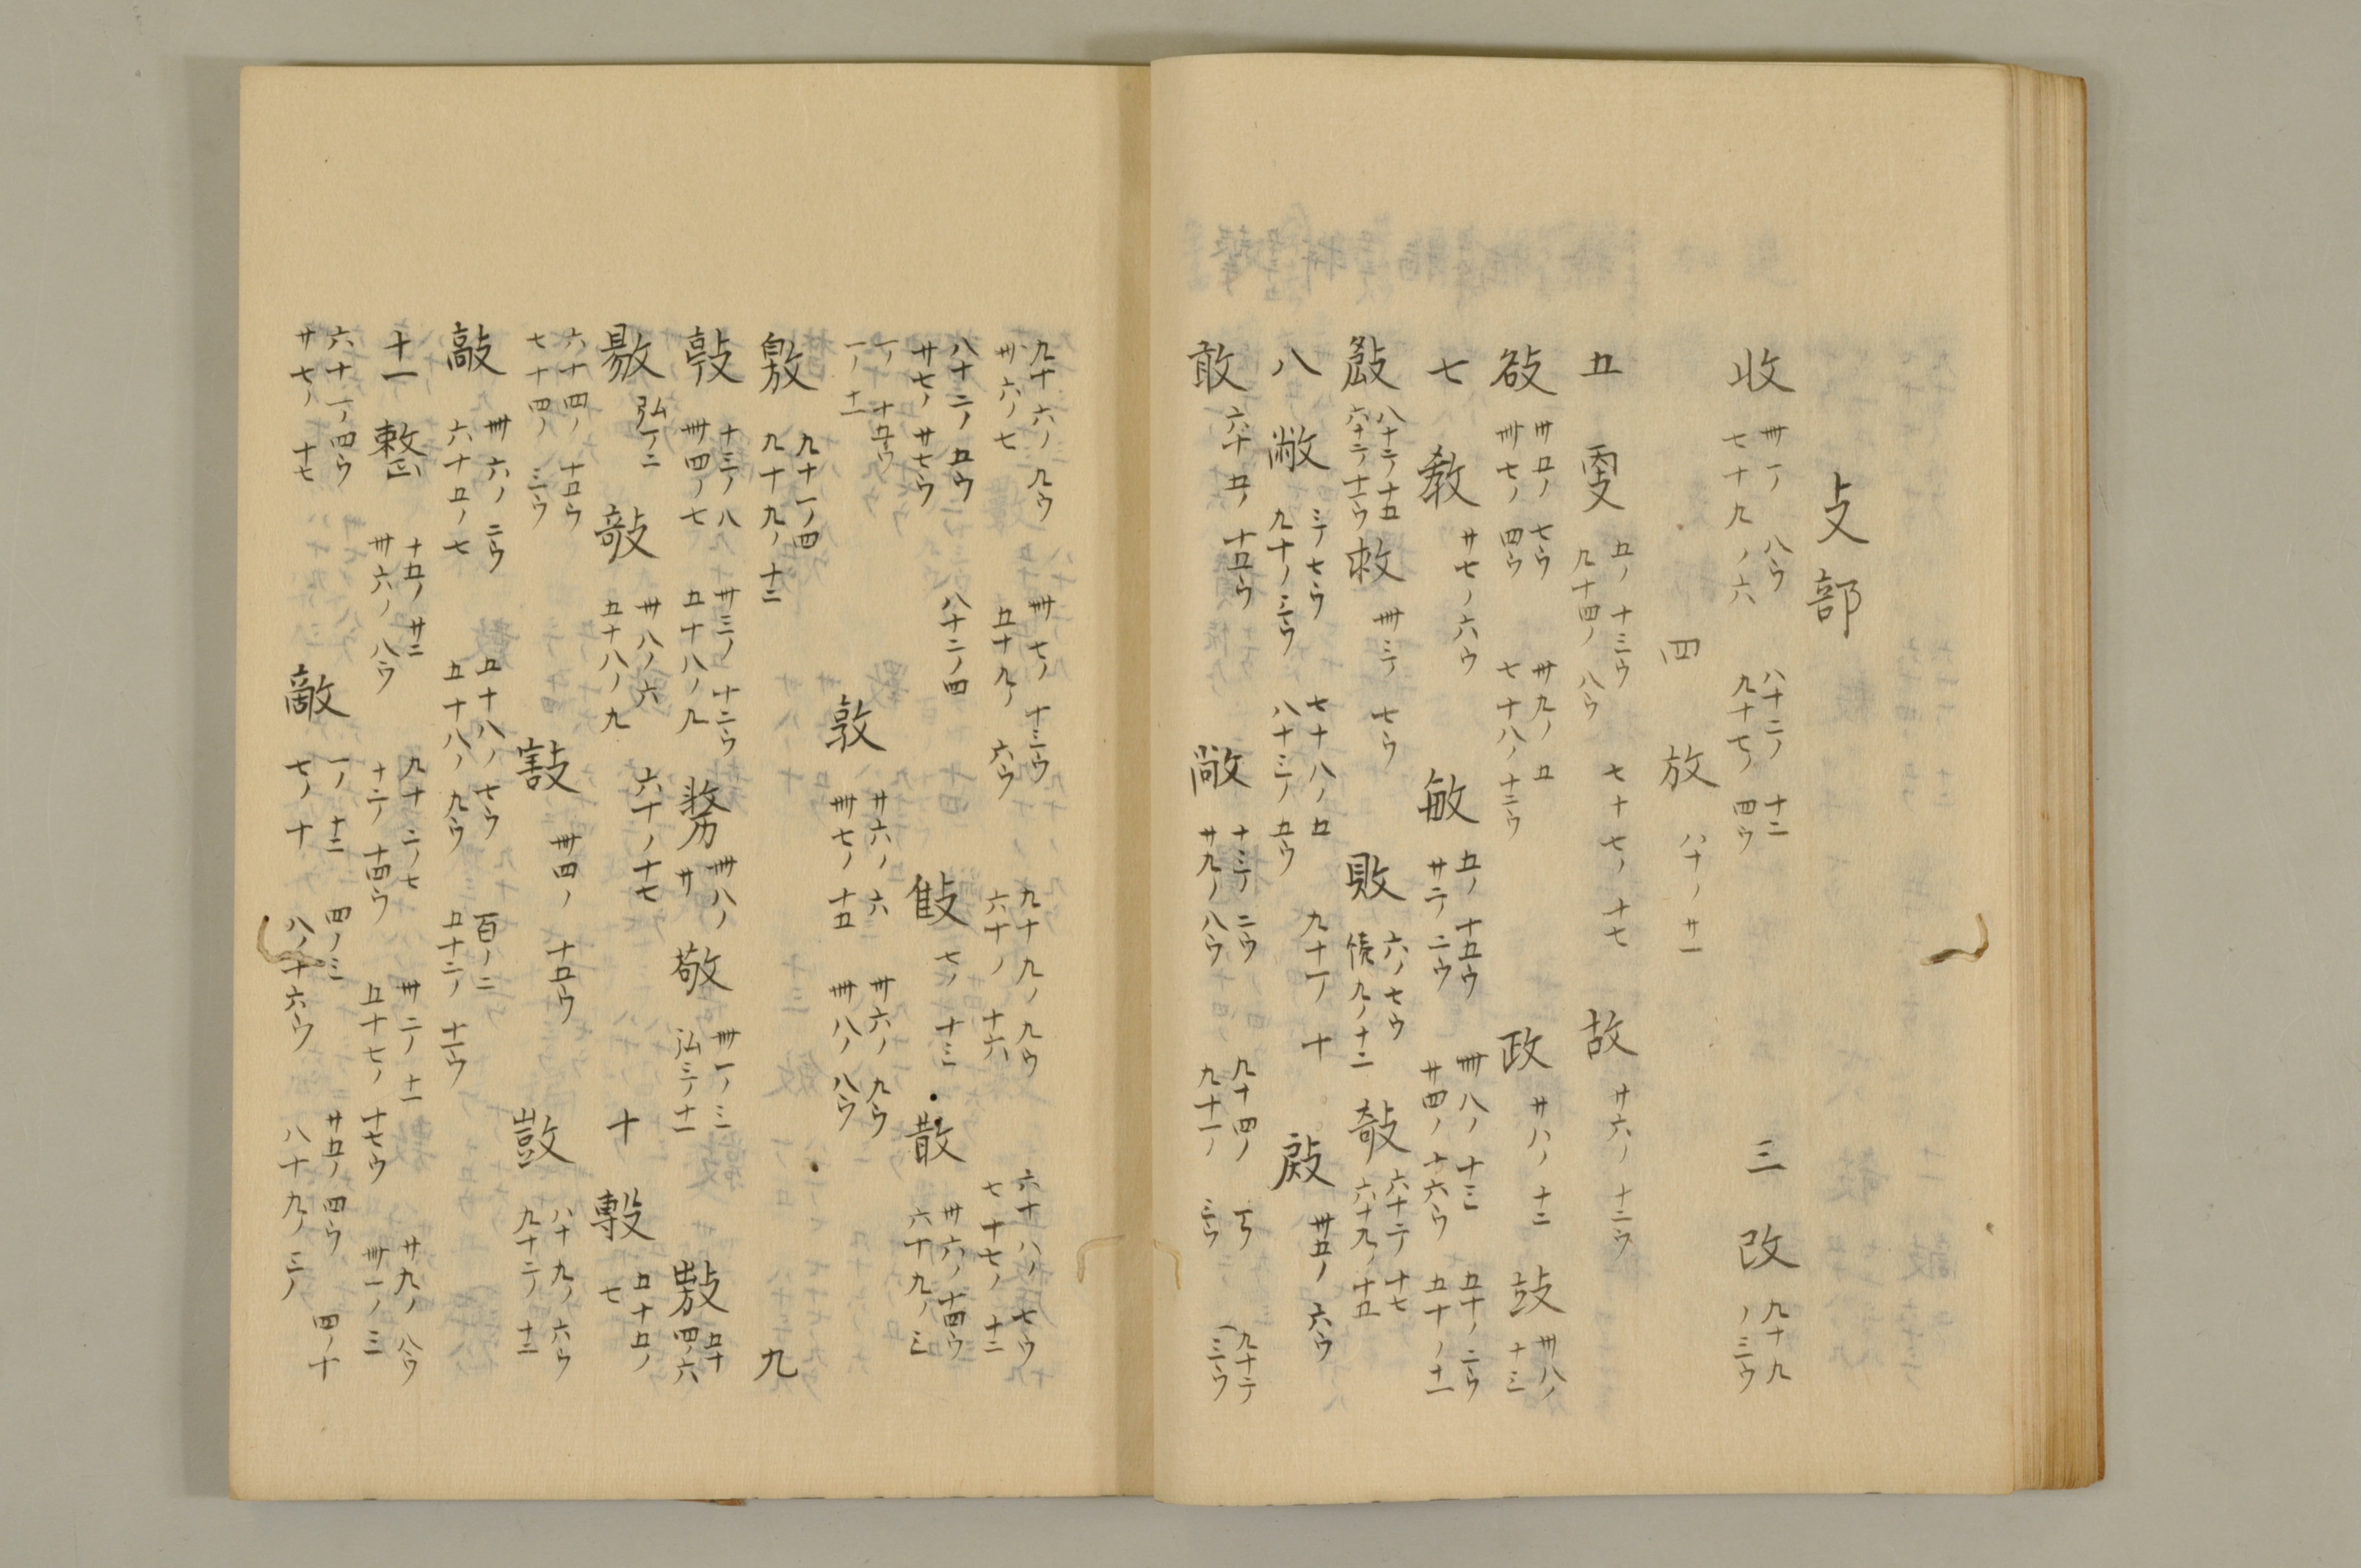 攴部
收 卅一ノ八ウ 七十九ノ六 八十二ノ十二 九十七ノ四ウ 三 改 九十九ノ三ウ
四 放 八十ノ廿一
五 𢻻 五ノ十三ウ 九十四ノ八ウ 七十七ノ十七 故 廿六ノ十二ウ
敆 卌五ノ七ウ 卌七ノ四ウ 卌九ノ五 七十八ノ十二ウ 政 廿八ノ十二 攱 卌八ノ十三
七 教 廿七ノ六ウ 敏 五ノ十五ウ 廿二ノ二ウ 卌八ノ十三 廿四ノ十六ウ 五十ノ二ウ 五十ノ十一
八十二ノ十五 六十二ノ十一ウ 救 卌三ノ七ウ 敗 六ノ七ウ 九ノ十二 敧 六十二ノ十七 六十九ノ十五
八 敝 三ノ七ウ 九十ノ三ウ 七十八ノ五 八十三ノ五ウ 九十一ノ十 卅五ノ六ウ
敢 六十五ノ十五ウ 敞 十三ノ二ウ 廿九ノ八ウ 九十四ノ 九十一ノ三ウ 九十二ノ三ウ
九十六ノ九ウ 卌六ノ七 卌七ノ十三ウ 五十九ノ六ウ 九十九ノ九ウ 六十ノ十六 六十八ノ七ウ 七十七ノ十二
八十二ノ五ウ 廿七ノ廿七ウ 八十二ノ四 七ノ十三 散 卌六ノ十四ウ 六十九ノ三
一ノ十五ウ 一ノ十一 敦 廿六ノ六 卌七ノ十五 卌六ノ九ウ 卌八ノ八ウ
敫 九十一ノ四 九十九ノ十二 九
十三ノ八 卌四ノ七 卅三ノ十二ウ 五十八ノ九 卌八ノ廿 敬 卌一ノ三 弘三ノ十一 五十四ノ六
敡 弘一ノ二 卌八ノ六 五十八ノ九 六十ノ十七 十 五十五ノ七
六十四ノ十五ウ 七十四ノ三ウ 卌四ノ十五ウ 敳 八十九ノ六ウ 九十二ノ十二
敲 卌六ノ二ウ 六十五ノ七 五十八ノ七ウ 五十八ノ九ウ 百ノ二 五十二ノ十一ウ
十一 整 十五ノ廿二 卌六ノ八ウ 九十二ノ七 十二ノ十四ウ 卌二ノ十一 五十七ノ十七ウ 廿九ノ八ウ 卌一ノ三
六十一ノ四ウ 廿七ノ十七 敵 一ノ十二 七ノ十 四ノ三 八ノ十六ウ 廿五ノ四ウ 八十九ノ三ノ 四ノ十